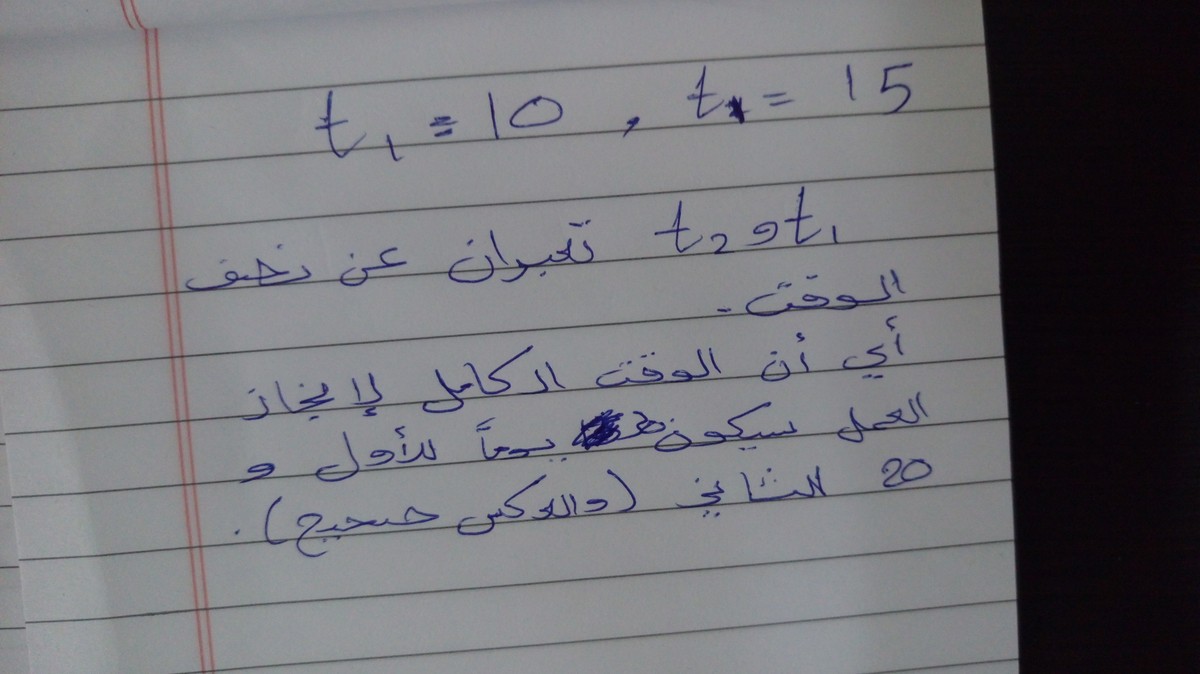 t₁ = 10 , t = 15
t₁ و t₂ تعبران عن نصف
الوقت .
أي أن الوقت الكامل لإنجاز
العمل سيكون يوماً للأول و
20 للثاني (والعكس صحيح) .